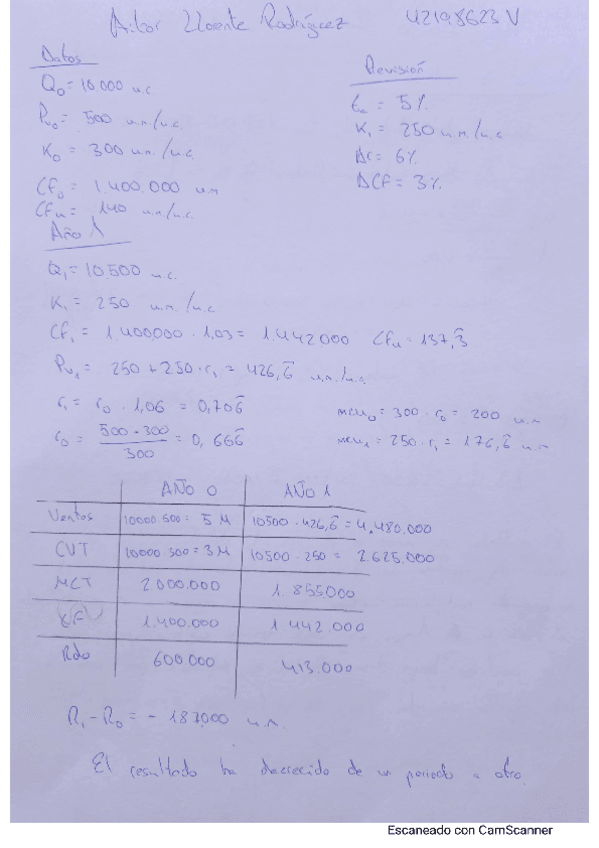 Aitor Llorente Rodríguez 42198623 V
Datos
Q₀ = 10.000 u.c
Pv₀ = 500 u.m/u.c.
K₀ = 300 u.m./u.c.
CF₀ = 1.400.000 u.m
CFu = 140 u.m/u.c.
Revisión
K₁ = 250 u.m./u.c.
Δr = 6%
ΔCF = 3%
Año 1
Q₁ = 10.500 u.c.
K₁ = 250 u.m./u.c.
CF₁ = 1.400.000 · 1,03 = 1.442.000 CFu = 137,3̄
Pv₁ = 250 + 250 · r₁ = 426,6̄ u.m/u.c.
r₁ = r₀ · 1,06 = 0,706̄
mcu₀ = 300 · r₀ = 200 u.m
r₀ = 500 - 300 / 300 = 0,666̄
mcu₁ = 250 · r₁ = 176,6̄ u.m
AÑO 0 AÑO 1
Ventas 10000·500 = 5 M 10500 · 426,6̄ = 4.480.000
CVT 10000·300 = 3 M 10500 · 250 = 2.625.000
MCT 2.000.000 1.855.000
CF 1.400.000 1.442.000
Rdo 600.000 413.000
R₁ - R₀ = - 187.000 u.m.
El resultado ha decrecido de un periodo a otro.
Escaneado con CamScanner